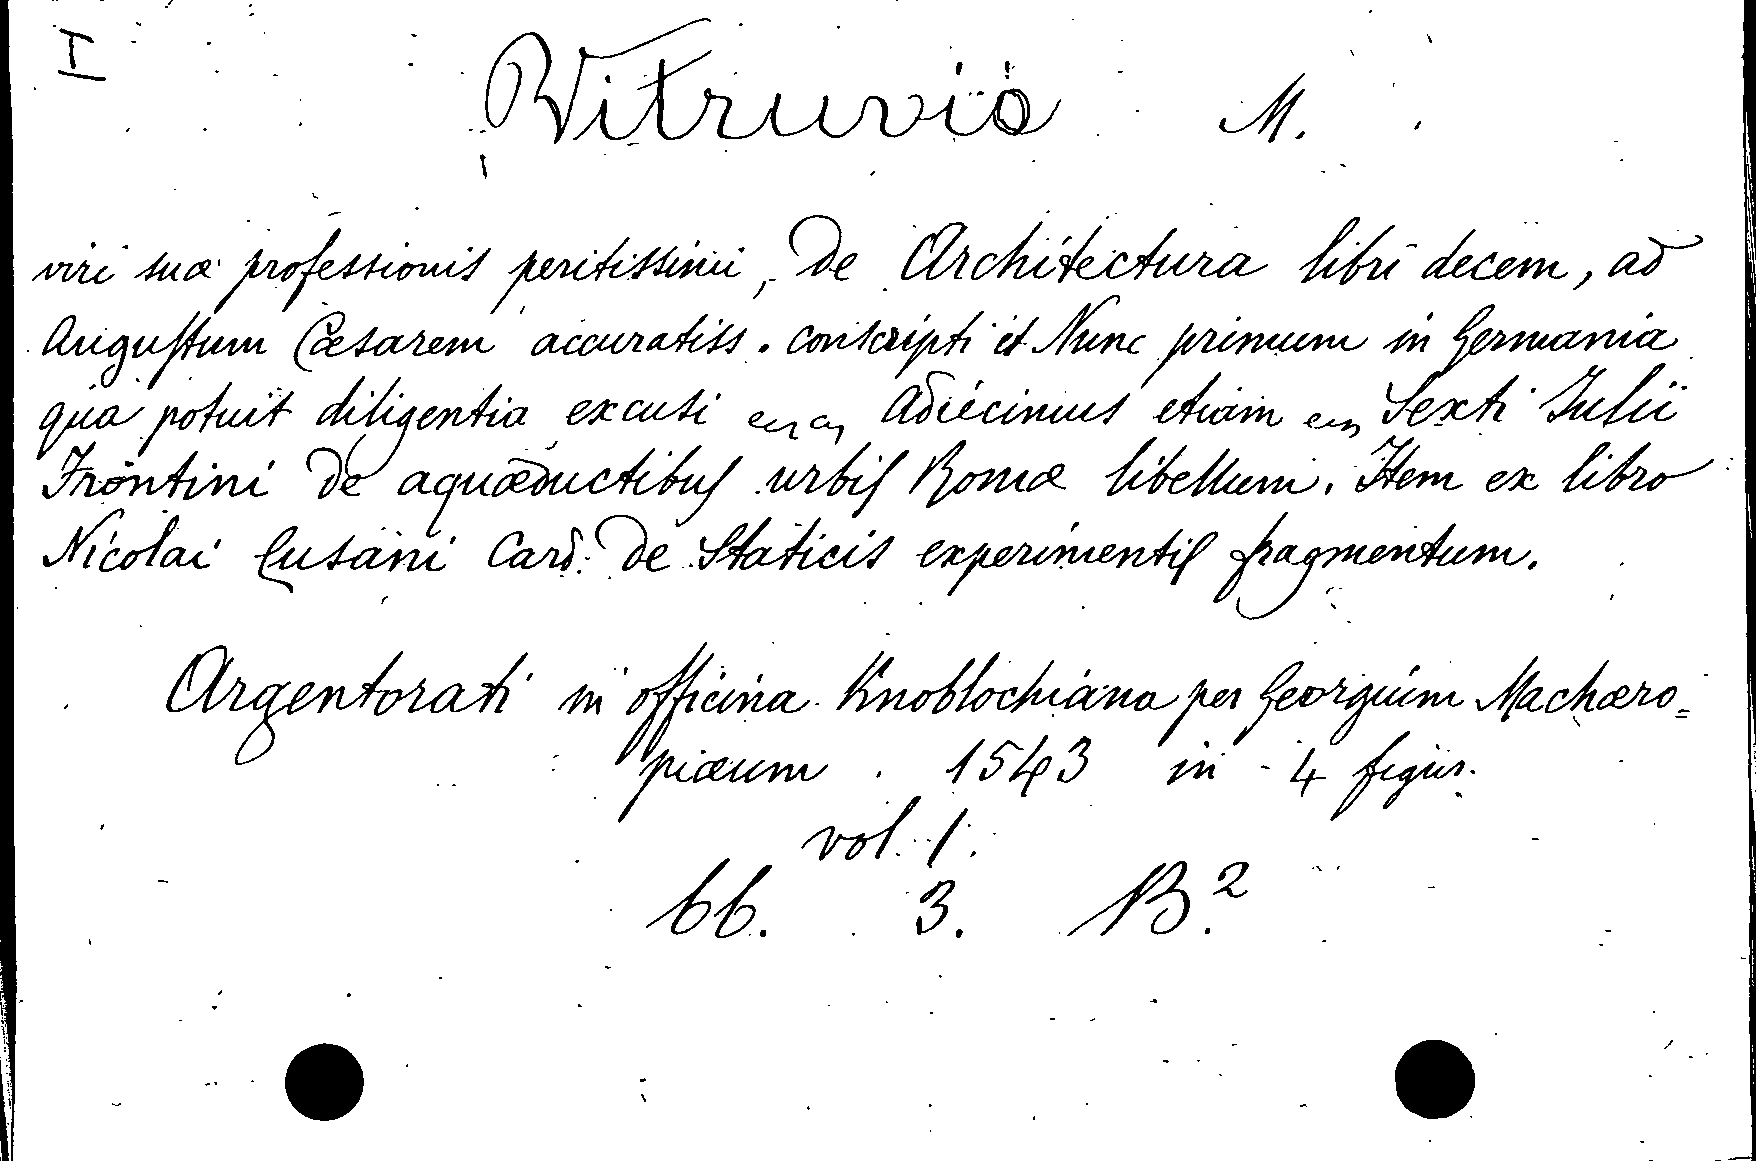 I
Vitruvio M.
viri suæ professionis peritissimi, De Architectura libri decem, ad
Augustum Cæsarem accuratiss. conscripti et Nunc primum in Germania
qua potuit diligentia excusi Adiecimus etiam Sexti Julii
Frontini De aquæductibus urbis Romæ libellum. Item ex libro
Nicolai Cusani Card. De Staticis experimentis fragmentum.
Argentorati in officina Knoblochiana per Georgium Machæro=
piæum. 1543 in - 4 figur.
vol. 1.
66. 3. B.²